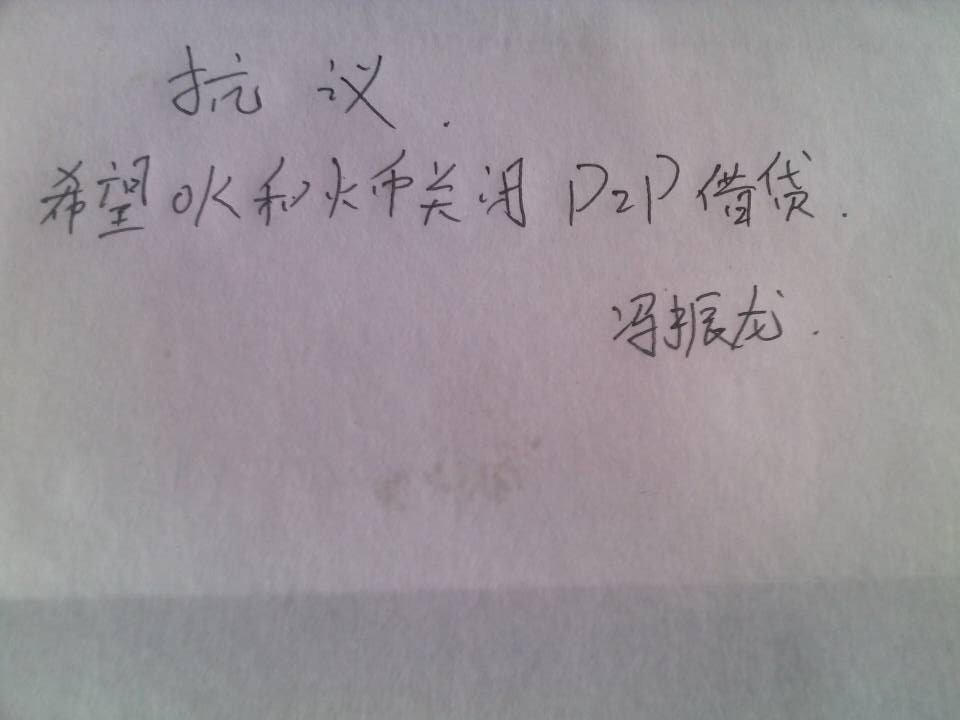 抗议.
希望OK和火币关闭P2P借贷.
冯振龙.